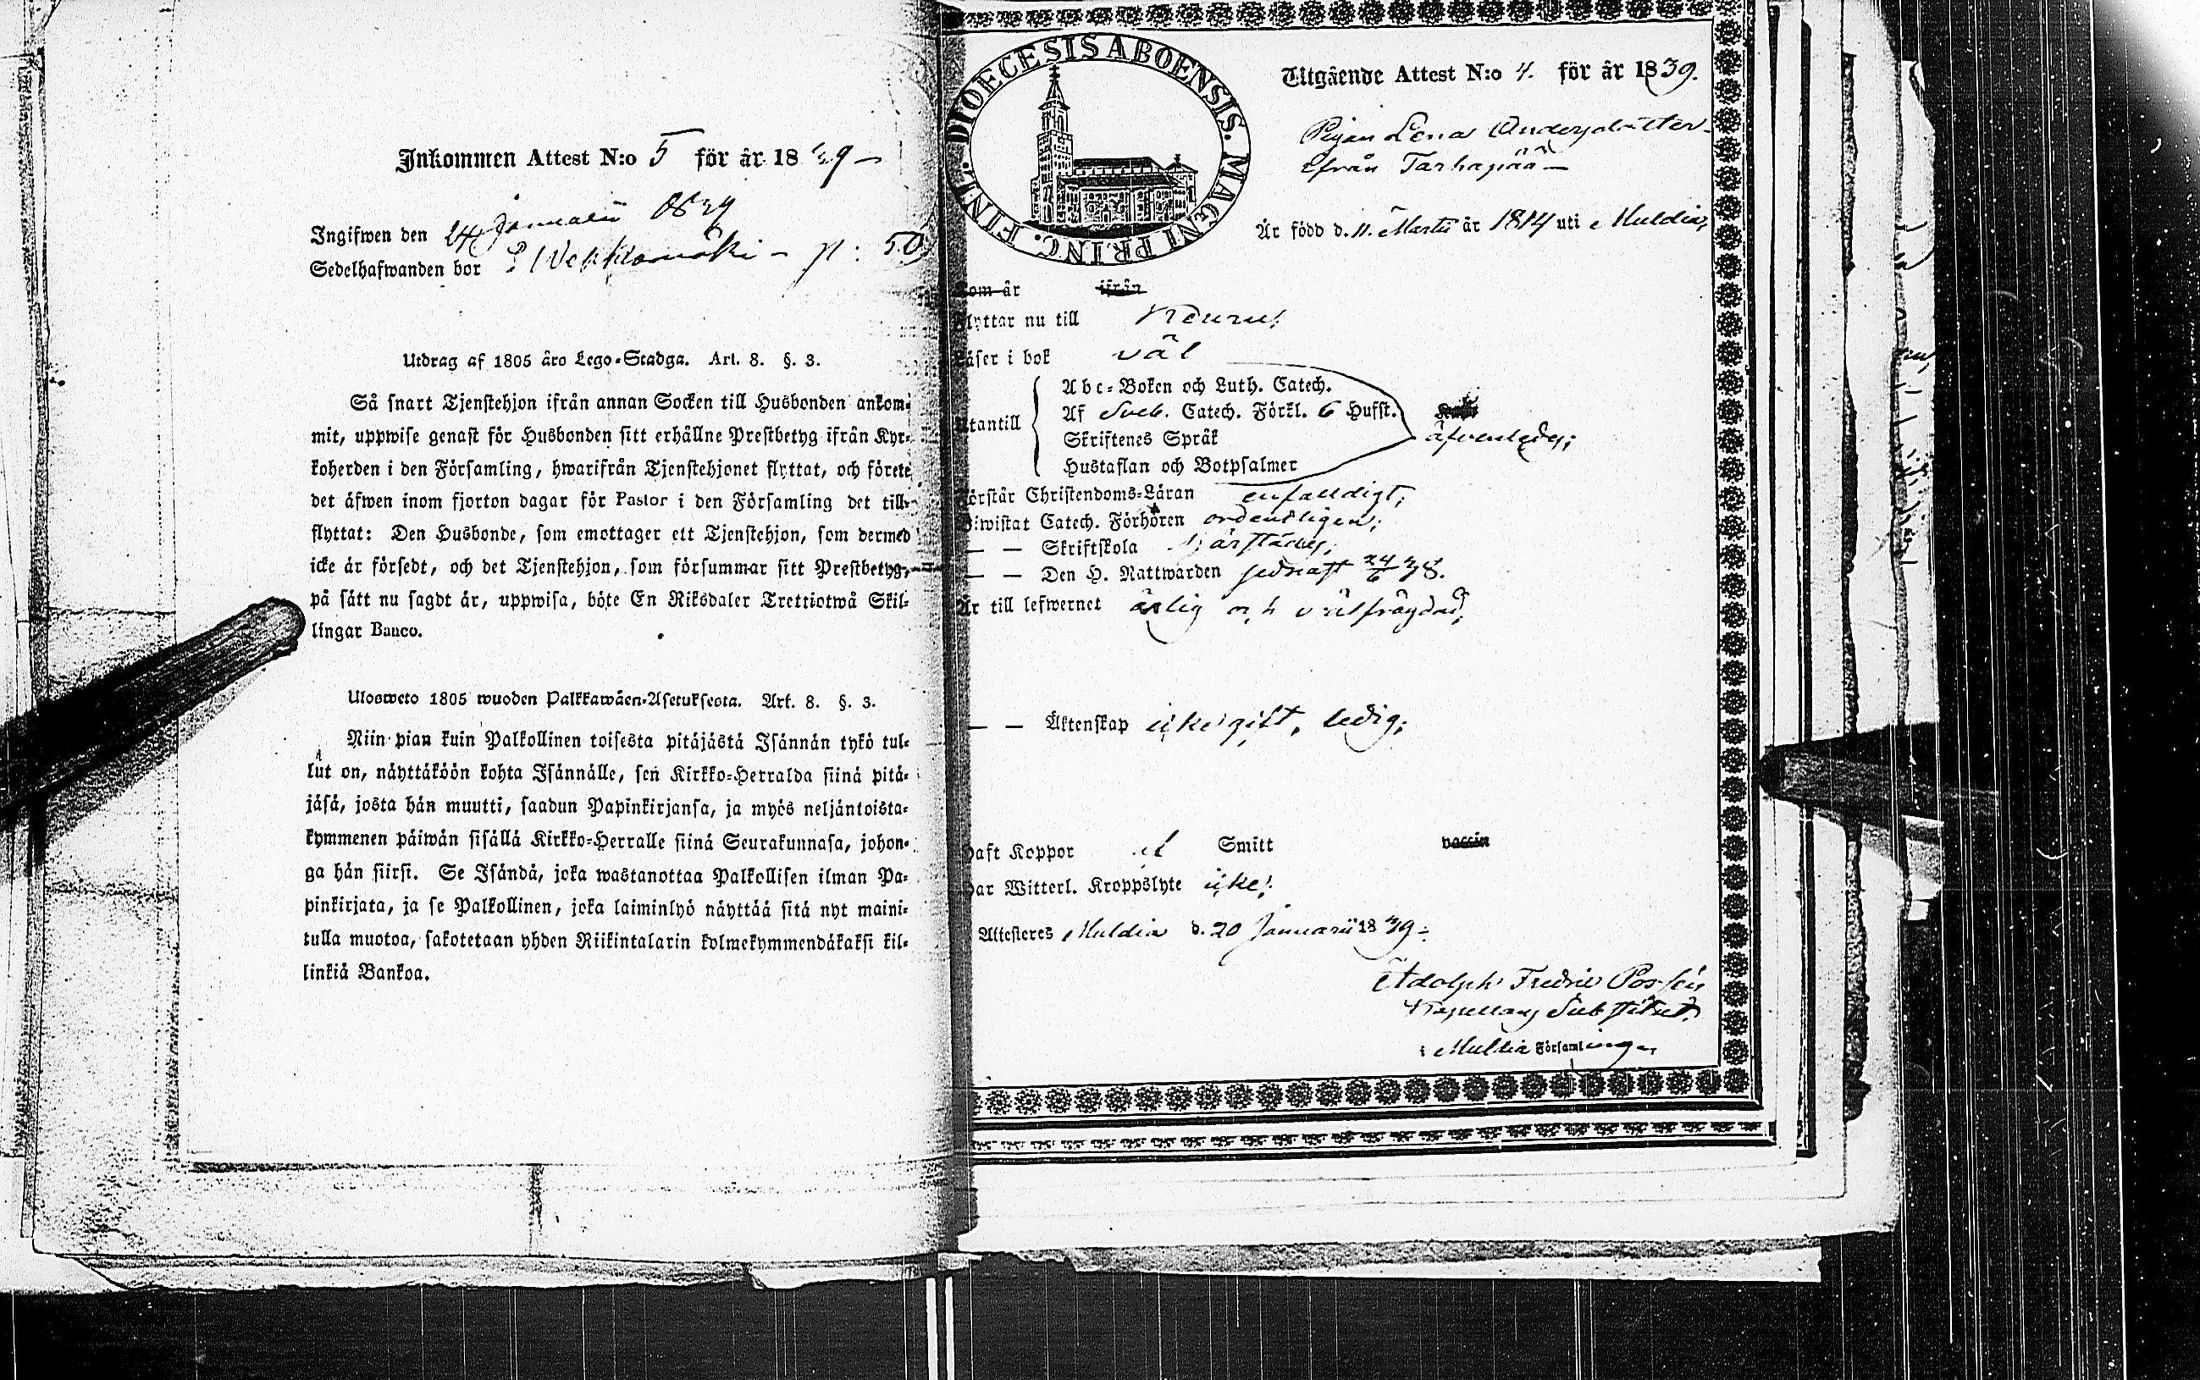 Inkommen Attest N:o 5 för år 1839
Ingifwen den 24 Januarii 1839
Sedelhafwanden bor p: 50
Utdrag af 1805 åro Lego-Stadga. Art. 8. §. 3.
Så snart Tjenstehjon ifrån annan Socken till Husbonden ankom-
mit, uppwise genast för Husbonden sitt erhållne Prestbetyg ifrån Kyr-
koherden i den Församling, hwarifrån Tjenstehjonet flyttat, och förete
det äfwen inom fjorton dagar för Pastor i den Församling det till-
flyttat: Den Husbonde, som emottager ett Tjenstehjon, som dermed
icke är försedt, och det Tjenstehjon, som försummar sitt Prestbetyg,
på sätt nu sagdt är, uppwisa, böte En Riksdaler Trettiotwå Skil-
lingar Banco.
Ulosweto 1805 wuoden Palkkawäen-Asetuksesta. Art. 8. §. 3.
Niin pian kuin Palkollinen toisesta pitäjästä Isännän tykö tul-
lut on, näyttäköön kohta Isännälle, sen Kirkko-Herralda siinä pitä-
jäsä, josta hän muutti, saadun Papinkirjansa, ja myös neljäntoista-
kymmenen päiwän sisällä Kirkko-Herralle siinä Seurakunnasa, johon-
ga hän siirsi. Se Isändä, joka wastanottaa Palkollisen ilman Pa-
pinkirjata, ja se Palkollinen, joka laiminlyö näyttää sitä nyt maini-
tulla muotoa, sakotetaan yhden Riikintalarin kolmekymmendäkaksi kil-
linkiä Bankoa.
DIOECESIS ABOENSIS. MAGNI PRINC. FINL.
Utgående Attest N:o 4. för år 1839.
Pigan Lena Andersdotter
ifrån Tarhapää
Är född d. 11. Martii år 1814 uti Muldia,
Kom år ifrån
Flyttar nu till Keuru;
Läser i bok väl
Utantill
Abc-Boken och Luth. Catech.
Af Sveb. Catech. Förkl. 6 Hufst.
Skriftenes Språk
Hustaflan och Botpsalmer
äfvenledes;
Förstår Christendoms-Läran enfaldigt;
Biwistat Catech. Förhören ordentligen;
— — Skriftskola
— — Den H. Nattwarden sednast 24/6 38.
Är till lefwernet ärlig och välfrägdad;
— — Äktenskap icke gift, ledig;
Haft Koppor Smitt vaccin
Har Witterl. Kroppslyte icke;
Attesteres Muldia d. 20 Januarii 1839
Adolph Fredric
Kapellans Substitut
i Muldia Församling